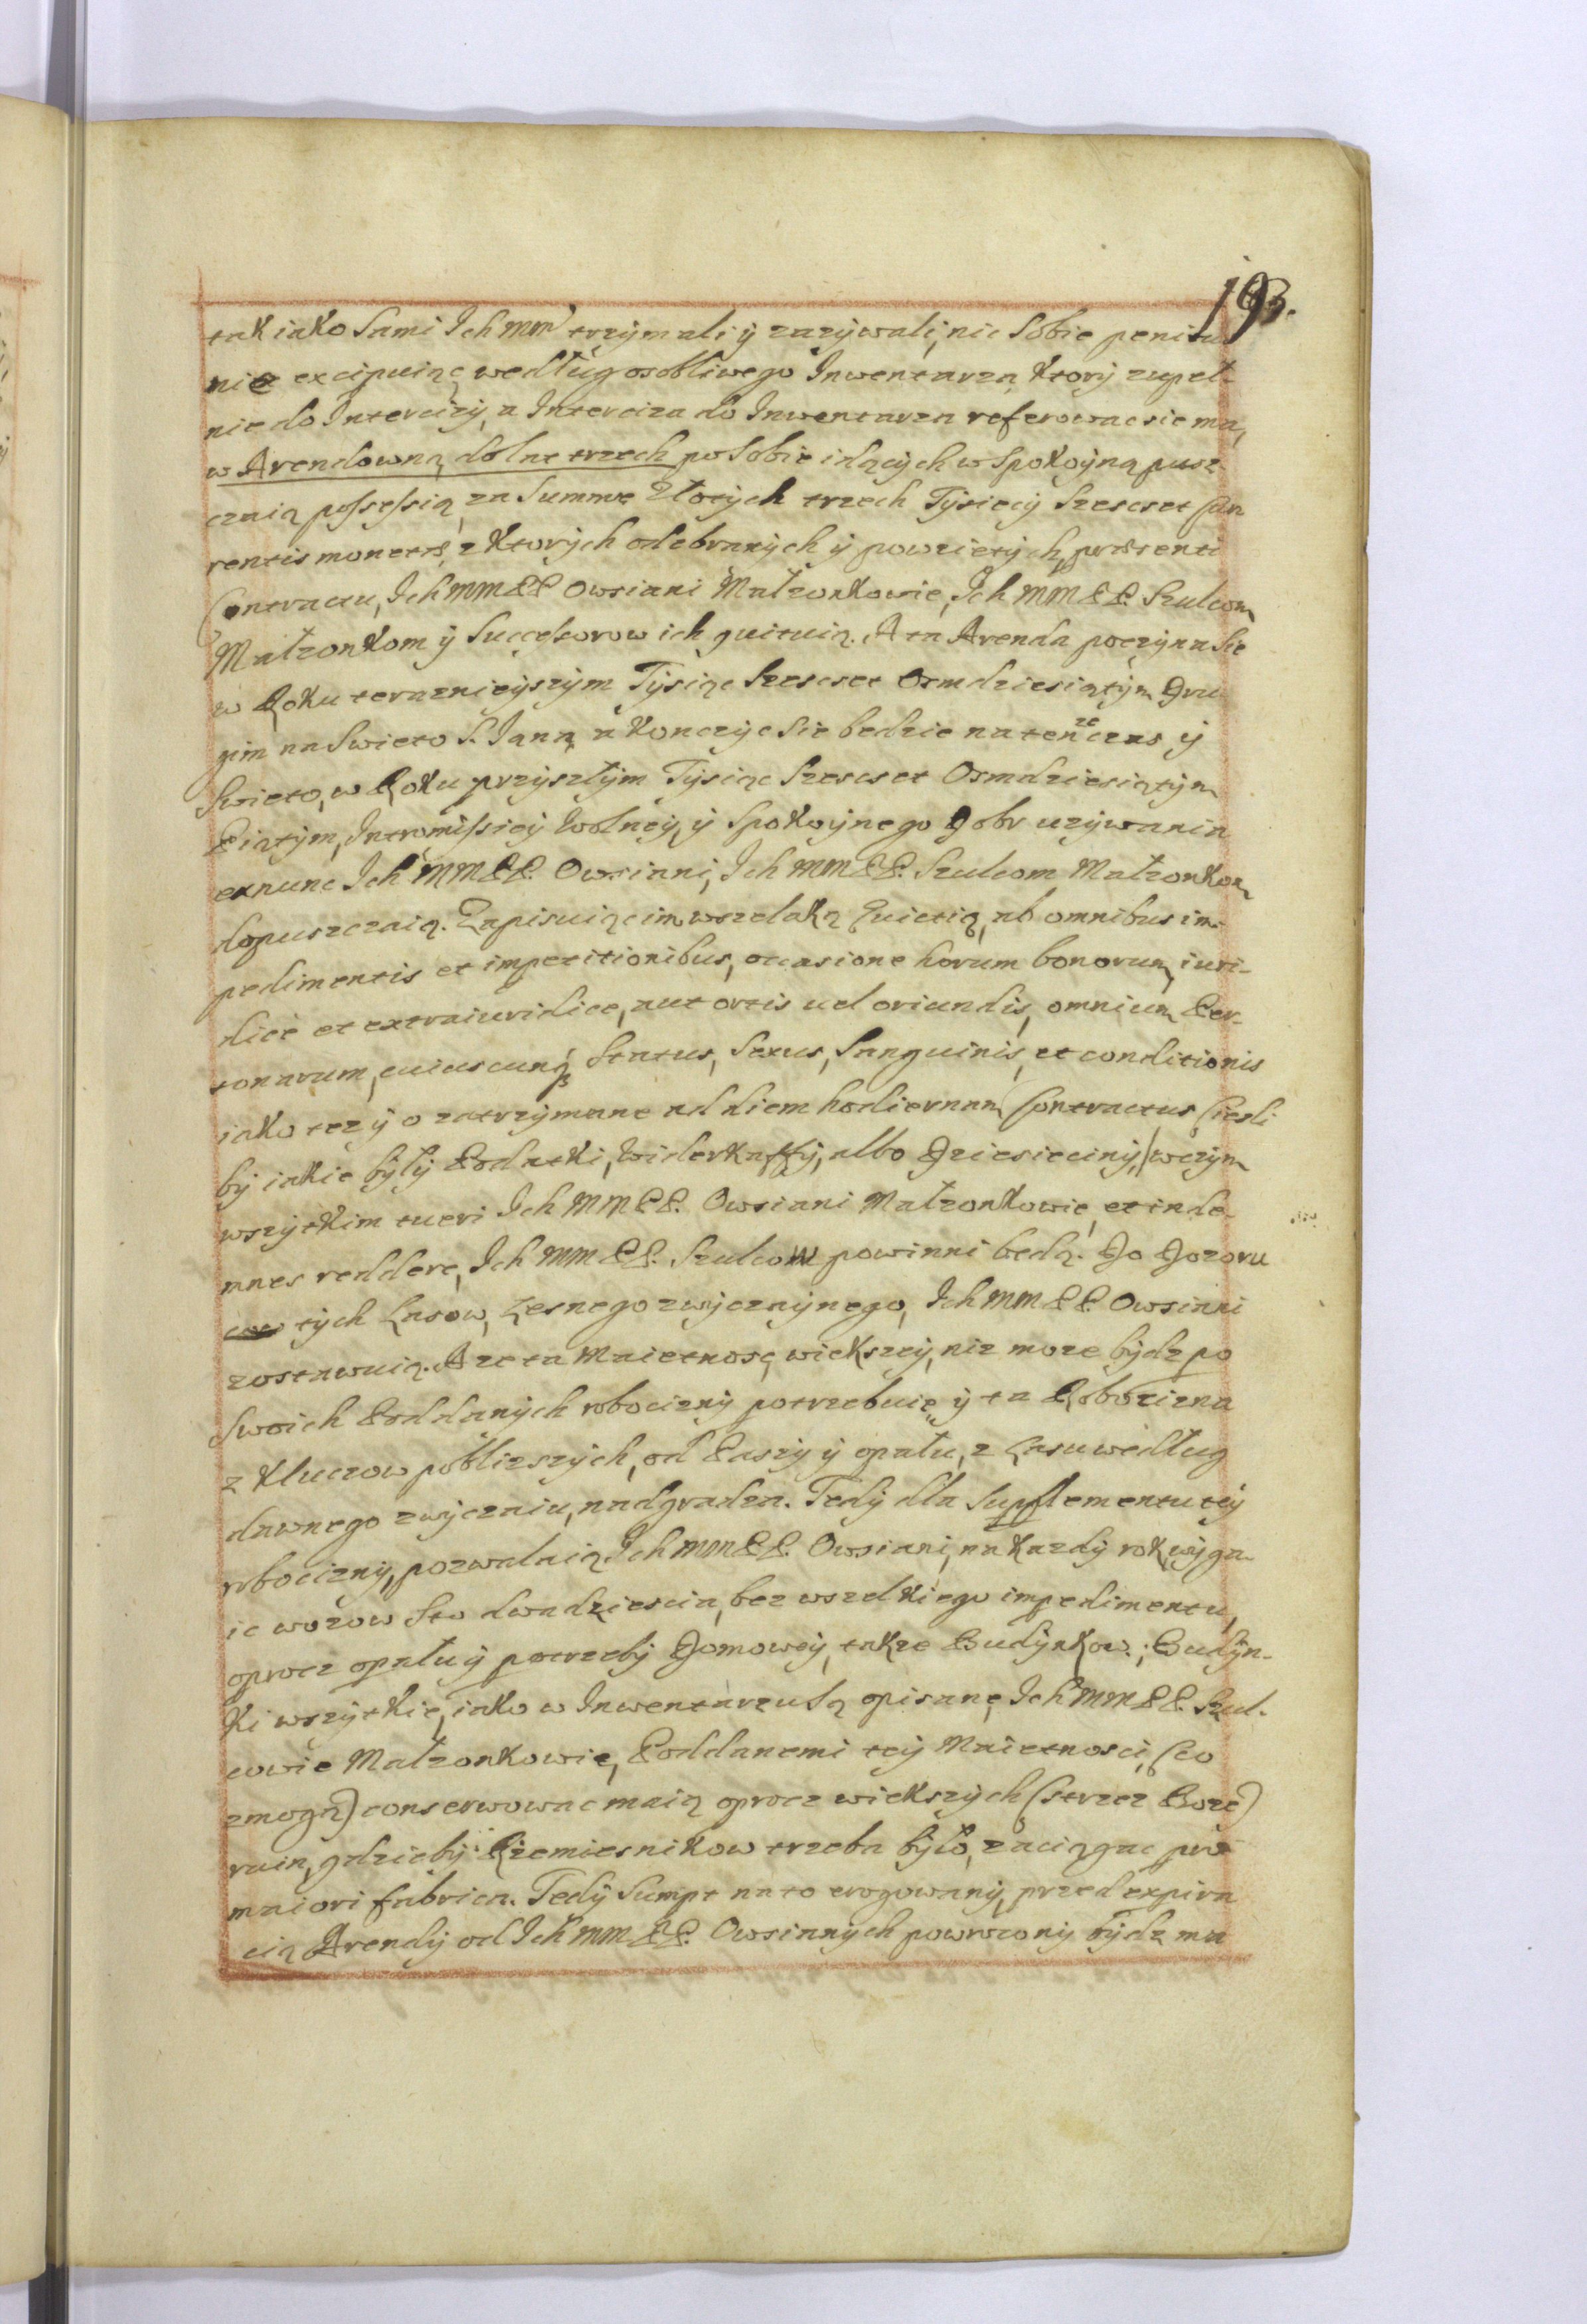 193.
tak iako Sami Ich mm trzymali ÿ zazÿwali, nic Sobie penitus
nie excipuiąc według osobliwego Inwentarza, Ktorÿ zupeł-
nie do Intercizÿ, a Interciza do Inwentarza referowac sie ma,
w Arendowną dolat trzech po Sobie idącÿch w Spokoÿną pusz-
czaią possessią, za Summe Złotÿch trzech Tÿsiecÿ Szescset Cur
rentis monetæ, z Ktorÿch odebranÿch ÿ powzietÿch, præsenti
Contractu, Ich MM PP Owsiani Małzonkowie, Ich MM PP. Szulcom
Małzonkom ÿ Successorow ich quituią. A ta Arenda poczÿna sie
w Roku teraznieÿszÿm Tÿsiąc Szescset Osmdziesiątÿm Dru
gim na Swieto S. Jana, a Konczÿc Sie bedzie na tenze czas ÿ
Swieto, w Roku przÿszłÿm Tÿsiąc Szescset Osmdziesiątÿm
Piątÿm, Intromissieÿ Wolneÿ, ÿ Spokoÿnego Dobr uzÿwania
exnunc Ich MM PP. Owsiani, Ich MM PP. Szulcom Małzonkom
dopuszczaią. Zapisuiąc im wszelaką Euictią, ab omnibus im-
pedimentis et impetitionibus, occasione horum bonorum, iuri-
dicè et extraiuridice, aut ortis uel oriundis, omnium Per-
sonarum, cuiuscunq Status, Sexus, Sanguinis, et conditionis
iako tez ÿ o zatrzÿmane ad diem hodiernam Contractus (iesli
bÿ iakie bÿłÿ Podatki, Widerkaffÿ, albo Dziesiecinÿ,) w czÿm
wszÿtkim tueri Ich MM PP. Owsiani Małzonkowie, et inde-
mnes reddere, Ich MM PP. Szulcow powinni będą. Do Dozoru
tÿch Lasow, Lesnego zwÿczaÿnego, Ich MM PP. Owsiani
zostawuią. A ze ta Maietnosc, wiekszeÿ, niz moze bÿdz po
Swoich Poddanÿch robociznÿ potrzebuie, ÿ ta Robocizna
z Kluczow poblizszÿch, od Paszÿ ÿ opału, z Lasu według
dawnego zwÿczaiu, nadgradza. Tedÿ dla Supplementu teÿ
robociznÿ, pozwalaią Ich MM PP. Owsiani, na Kazdÿ rok wÿga-
ic wozow Sto dwadziescia, bez wszelkiego impedimentu,
oprocz opału ÿ potrzebÿ Domoweÿ, takze Budÿnkow.; Budÿn-
ki wszÿtkie, iako w Inwentarzu Są opisane, Ich MM PP. Szul-
cowie Małzonkowie, Poddanemi teÿ Maietnosci, (co
zmogą) conserwowac maią oprocz wiekszÿch (Strzez Boze)
ruin, gdziebÿ Rzemiesnikow trzeba bÿło, zaciągac pro
maiori fabrica. Tedÿ Sumpt na to erogowanÿ, przed expira
cią Arendÿ od Ich MM PP. Owsianych powrocony bÿdz ma